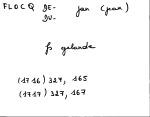 FLOCQ DE- jan (jean)
DU-
fs gelande
(1716) 327, 165
(1717) 327, 167